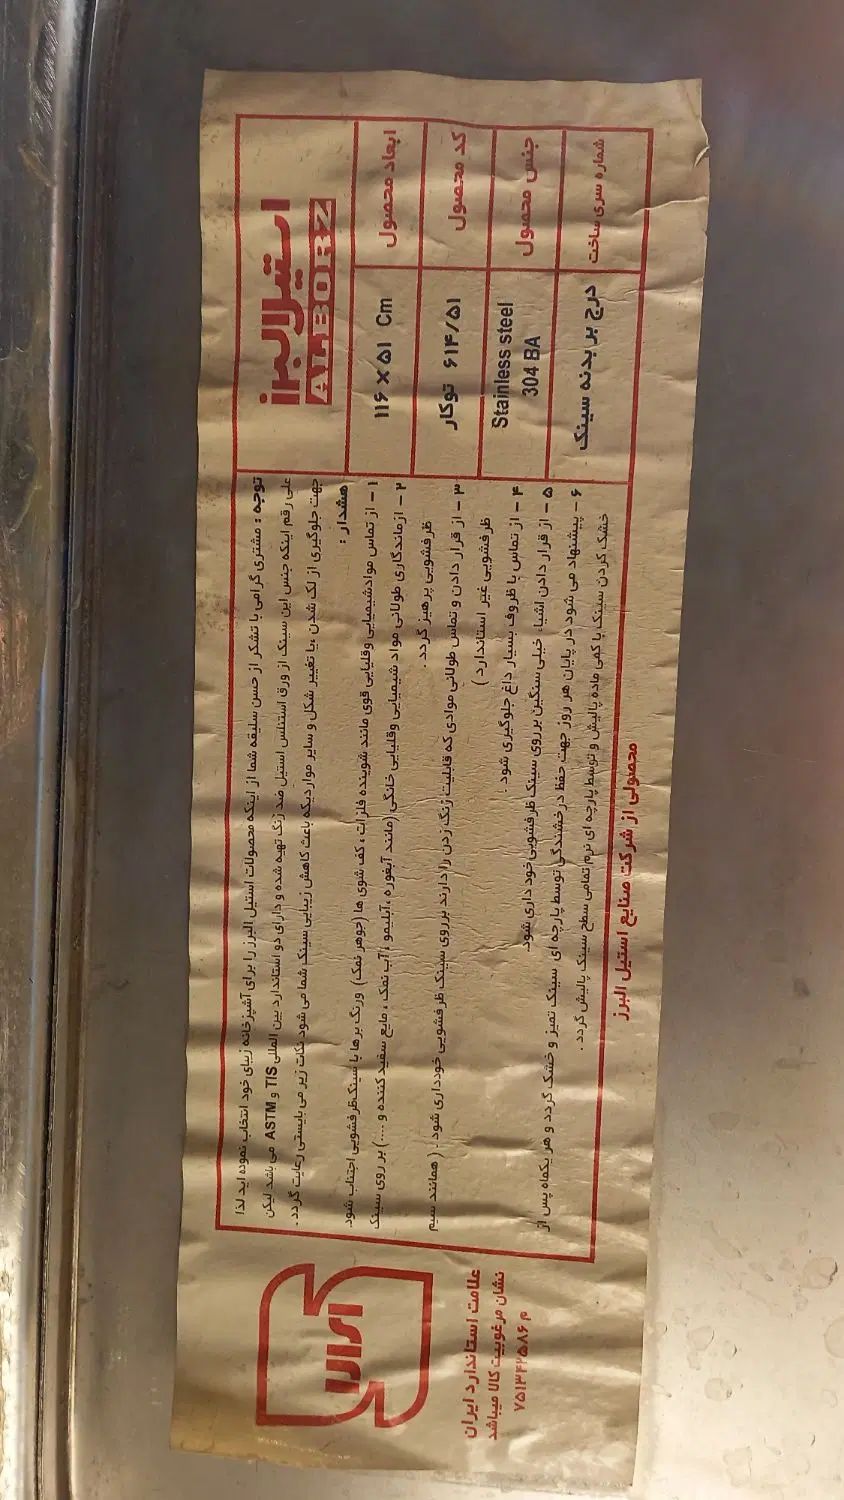 استیل البرز
ALBORZ
ابعاد محصول
۱۱۶ × ۵۱ Cm
کد محصول
۶۱۴/۵۱ توکار
جنس محصول
Stainless steel
304 BA
شماره سری ساخت
درج بر بدنه سینک
توجه : مشتری گرامی با تشکر از حسن سلیقه شما از اینکه محصولات استیل البرز را برای آشپزخانه زیبای خود انتخاب نموده اید لذا
علی رقم اینکه جنس این سینک از ورق استنلس استیل ضد زنگ تهیه شده و دارای دو استاندارد بین المللی TIS و ASTM می باشد لیکن
جهت جلوگیری از لک شدن ،یا تغییر شکل و سایر مواردیکه باعث کاهش زیبایی سینک شما می شود نکات زیر می بایستی رعایت گردد.
هشدار :
۱ - از تماس موادشیمیایی وقلیایی قوی مانند شوینده فلزات ، کف شوی ها (جوهر نمک) ورنگ برها با سینک ظرفشویی اجتناب شود.
۲ - ازماندگاری طولانی مواد شیمیایی وقلیایی خانگی (مانند آبغوره ،آبلیمو ، آب نمک ، مایع سفید کننده و ....) بر روی سینک
ظرفشویی پرهیز گردد .
۳ - از قرار دادن و تماس طولانی موادی که قابلیت زنگ زدن را دارند برروی سینک ظرفشویی خودداری شود . ( همانند سیم
ظرفشویی غیر استاندارد )
۴ - از تماس با ظروف بسیار داغ جلوگیری شود .
۵ - از قرار دادن اشیاء خیلی سنگین برروی سینک ظرفشویی خود داری شود.
۶ - پیشنهاد می شود در پایان هر روز جهت حفظ درخشندگی توسط پارچه ای سینک تمیز و خشک گردد و هر یکماه پس از
خشک کردن سینک با کمی ماده پالیش و توسط پارچه ای نرم تمامی سطح سینک پالیش گردد .
محصولی از شرکت صنایع استیل البرز
علامت استاندارد ایران
نشان مرغوبیت کالا میباشد
م ۷۵۱۳۴۲۵۸۶